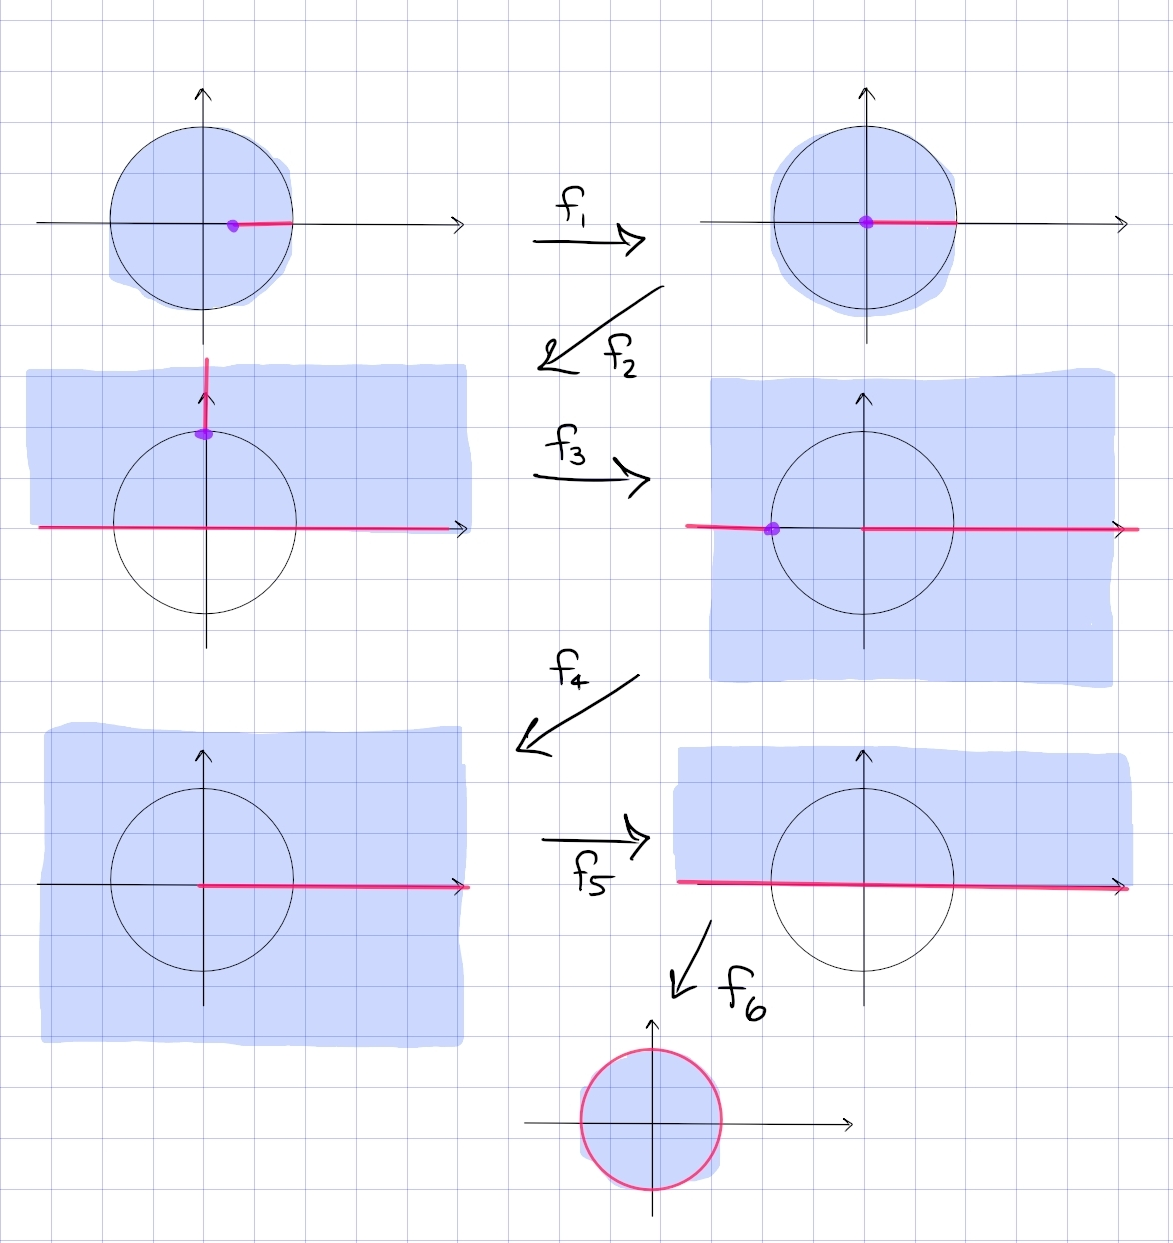 f₁
f₂
f₃
f₄
f₅
f₆